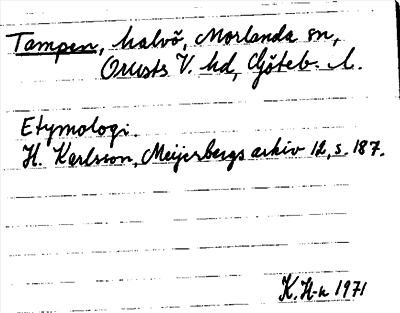 Tampen, halvö, Morlanda sn,
Orusts V. hd, Göteb. l.
Etymologi.
H. Karlsson, Meijerbergs arkiv 12, s. 187.
K. H-n 1971